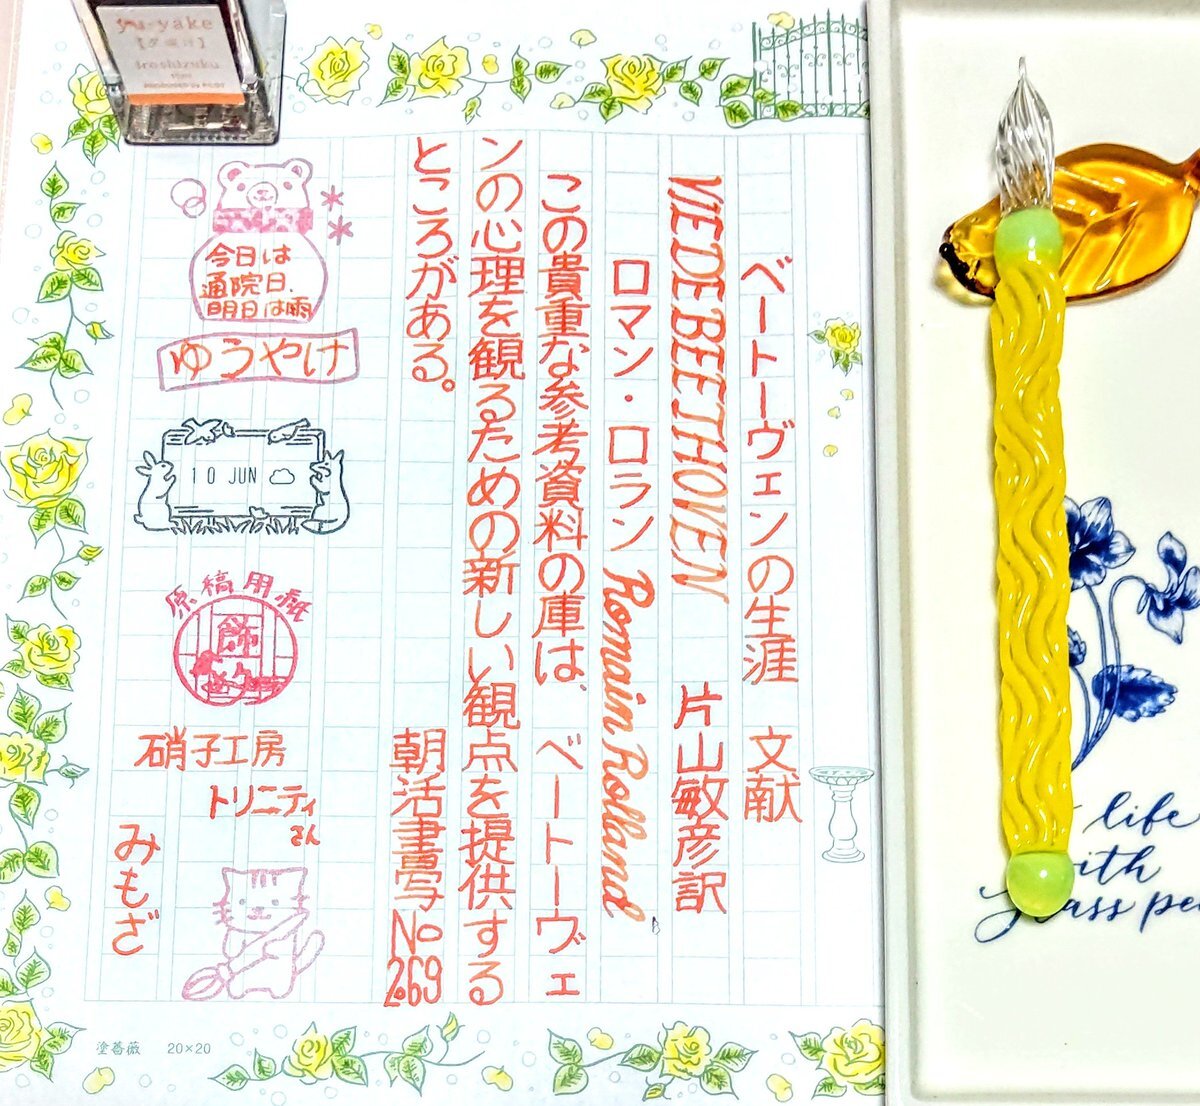 ベートーヴェンの生涯　文献
VIE DE BEETHOVEN　片山敏彦訳
ロマン・ロラン Romain Rolland
この貴重な参考資料の庫は、ベートーヴェ
ンの心理を観るための新しい観点を提供する
ところがある。
朝活書写No269
yu-yake
iroshizuku
今日は
通院日.
明日は雨
ゆうやけ
10 JUN
原稿用紙
飾
硝子工房
トリニティ
さん
みもざ
塗薔薇　20×20
life
with
glass pe